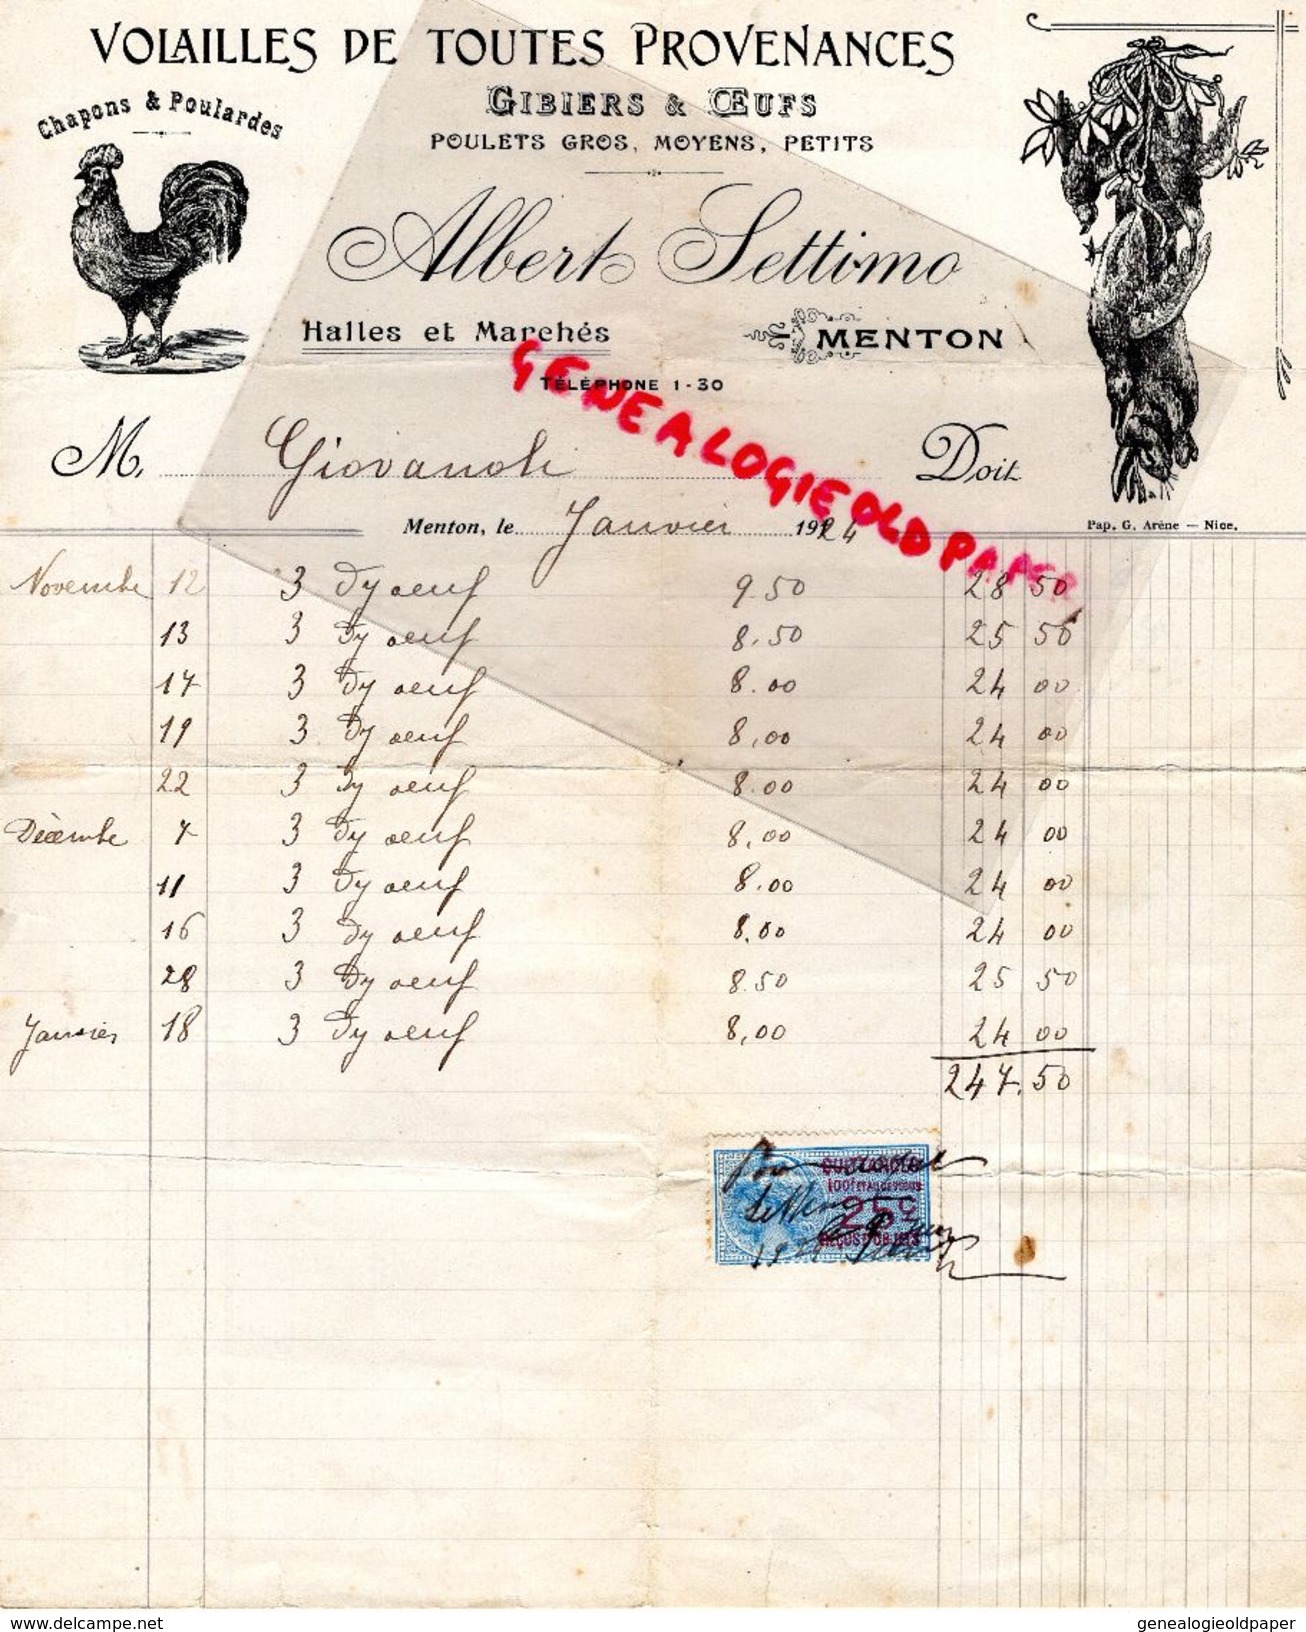 VOLAILLES DE TOUTES PROVENANCES
Chapons & Poulardes
GIBIERS & ŒUFS
POULETS GROS, MOYENS, PETITS
Albert Settimo
Halles et Marchés
MENTON
TÉLÉPHONE 1-30
GENEALOGIEOLDPAPER
M. Giovanoli Doit
Menton, le Janvier 1924
Pap. G. Arène — Nice.
Novembre 12 3 Dz oeuf 9.50 28 50
13 3 Dz oeuf 8.50 25 50
17 3 Dz oeuf 8.00 24 00
19 3 Dz oeuf 8,00 24 00
22 3 Dz oeuf 8.00 24 00
Décembre 7 3 Dz oeuf 8,00 24 00
11 3 Dz oeuf 8.00 24 00
16 3 Dz oeuf 8.00 24 00
28 3 Dz oeuf 8.50 25 50
Janvier 18 3 Dz oeuf 8,00 24 00
247.50
Pour
25c
delcampe.net
genealogieoldpaper